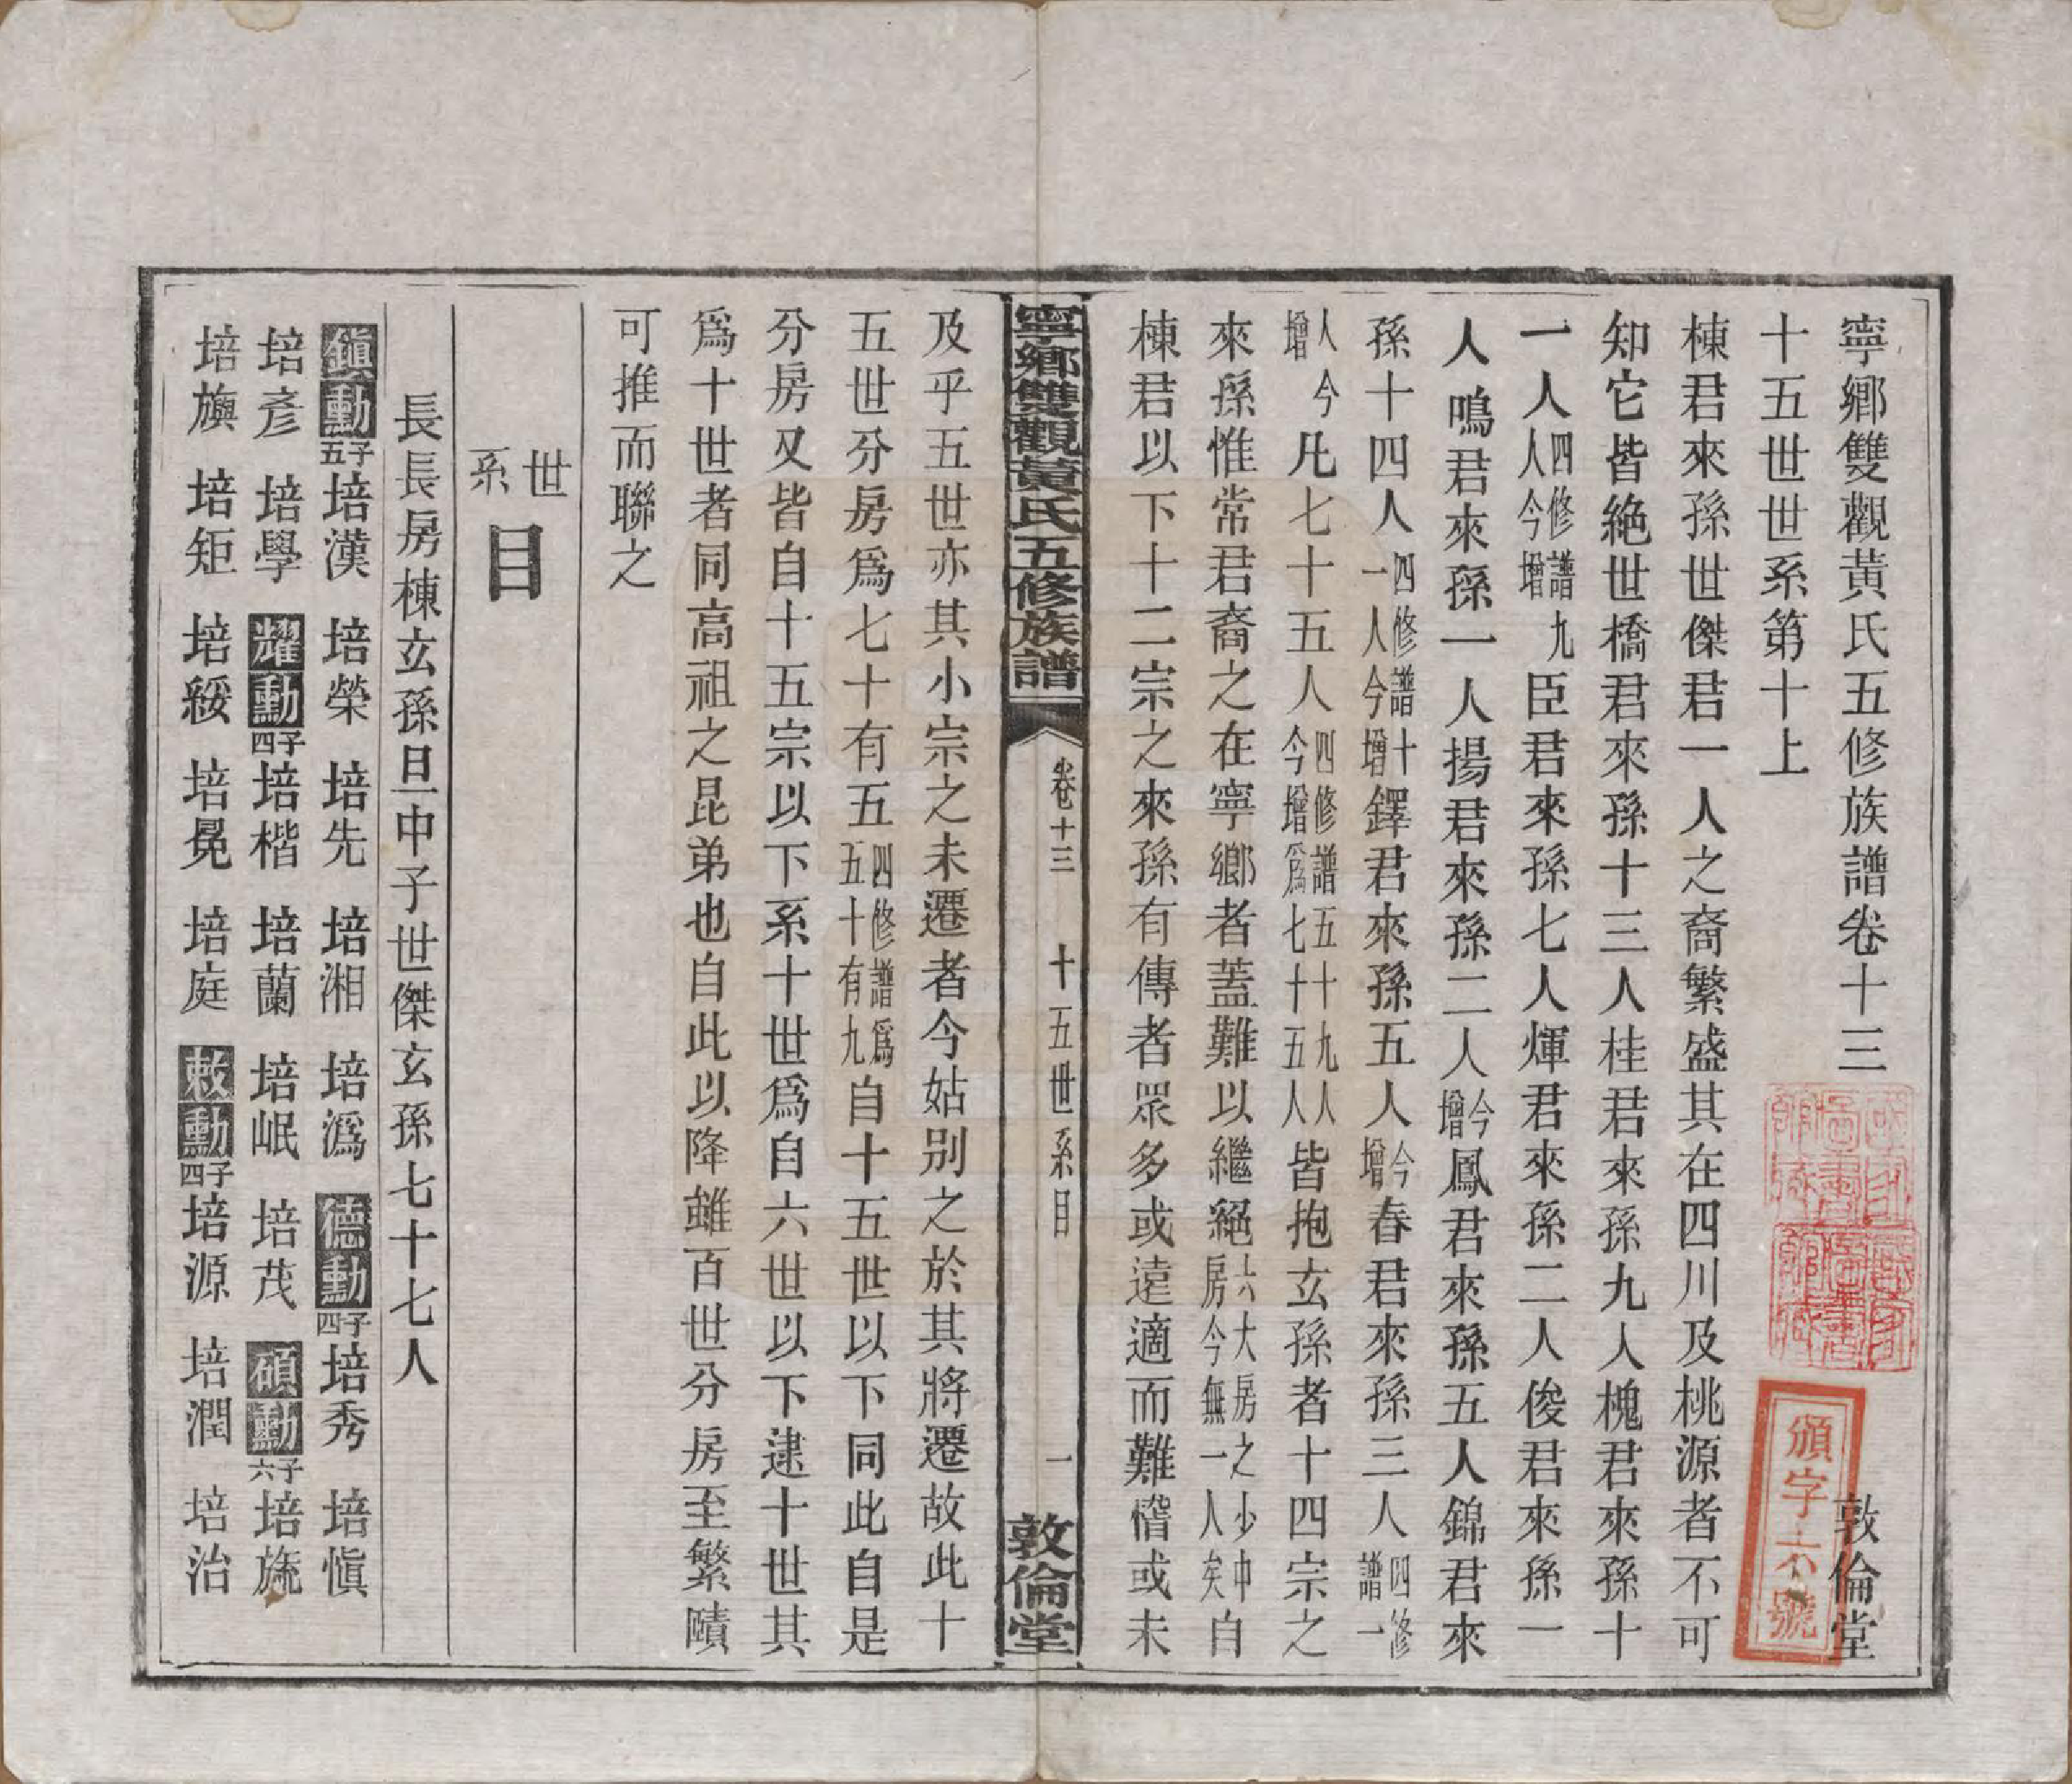 寧鄉雙觀黃氏五修族譜卷十三 敦倫堂
十五世世系第十上
棟君來孫世傑君一人之裔繁盛其在四川及桃源者不可
知它皆絶世橋君來孫十三人桂君來孫九人槐君來孫十
一人四修譜九人今增臣君來孫七人煇君來孫二人俊君來孫一
人鳴君來孫一人揚君來孫二人今增鳳君來孫五人錦君來
孫十四人四修譜十一人今增鐸君來孫五人今增春君來孫三人四修譜一
人今增凡七十五人四修譜五十九人今增爲七十五人皆抱玄孫者十四宗之
來孫惟常君裔之在寧鄉者蓋難以繼絕六大房之少中房今無一人矣自
棟君以下十二宗之來孫有傳者眾多或遠適而難稽或未
寧鄉雙觀黃氏五修族譜 卷十三 十五世系目 一 敦倫堂
及乎五世亦其小宗之未遷者今姑別之於其將遷故此十
五世分房爲七十有五四修譜爲五十有九自十五世以下同此自是
分房又皆自十五宗以下系十世爲自六世以下逮十世其
爲十世者同高祖之昆弟也自此以降雖百世分房至繁賾
可推而聯之
世系目
長長房棟玄孫旦中子世傑玄孫七十七人
鎮勳五子培漢 培榮 培先 培湘 培潙 德勳四子培秀 培愼
培彥 培學 耀勳四子培楷 培蘭 培岷 培茂 碩勳六子培旒
培旟 培矩 培綏 培冕 培庭 敕勳四子培源 培潤 培治
國家圖書館藏書
頒字六號